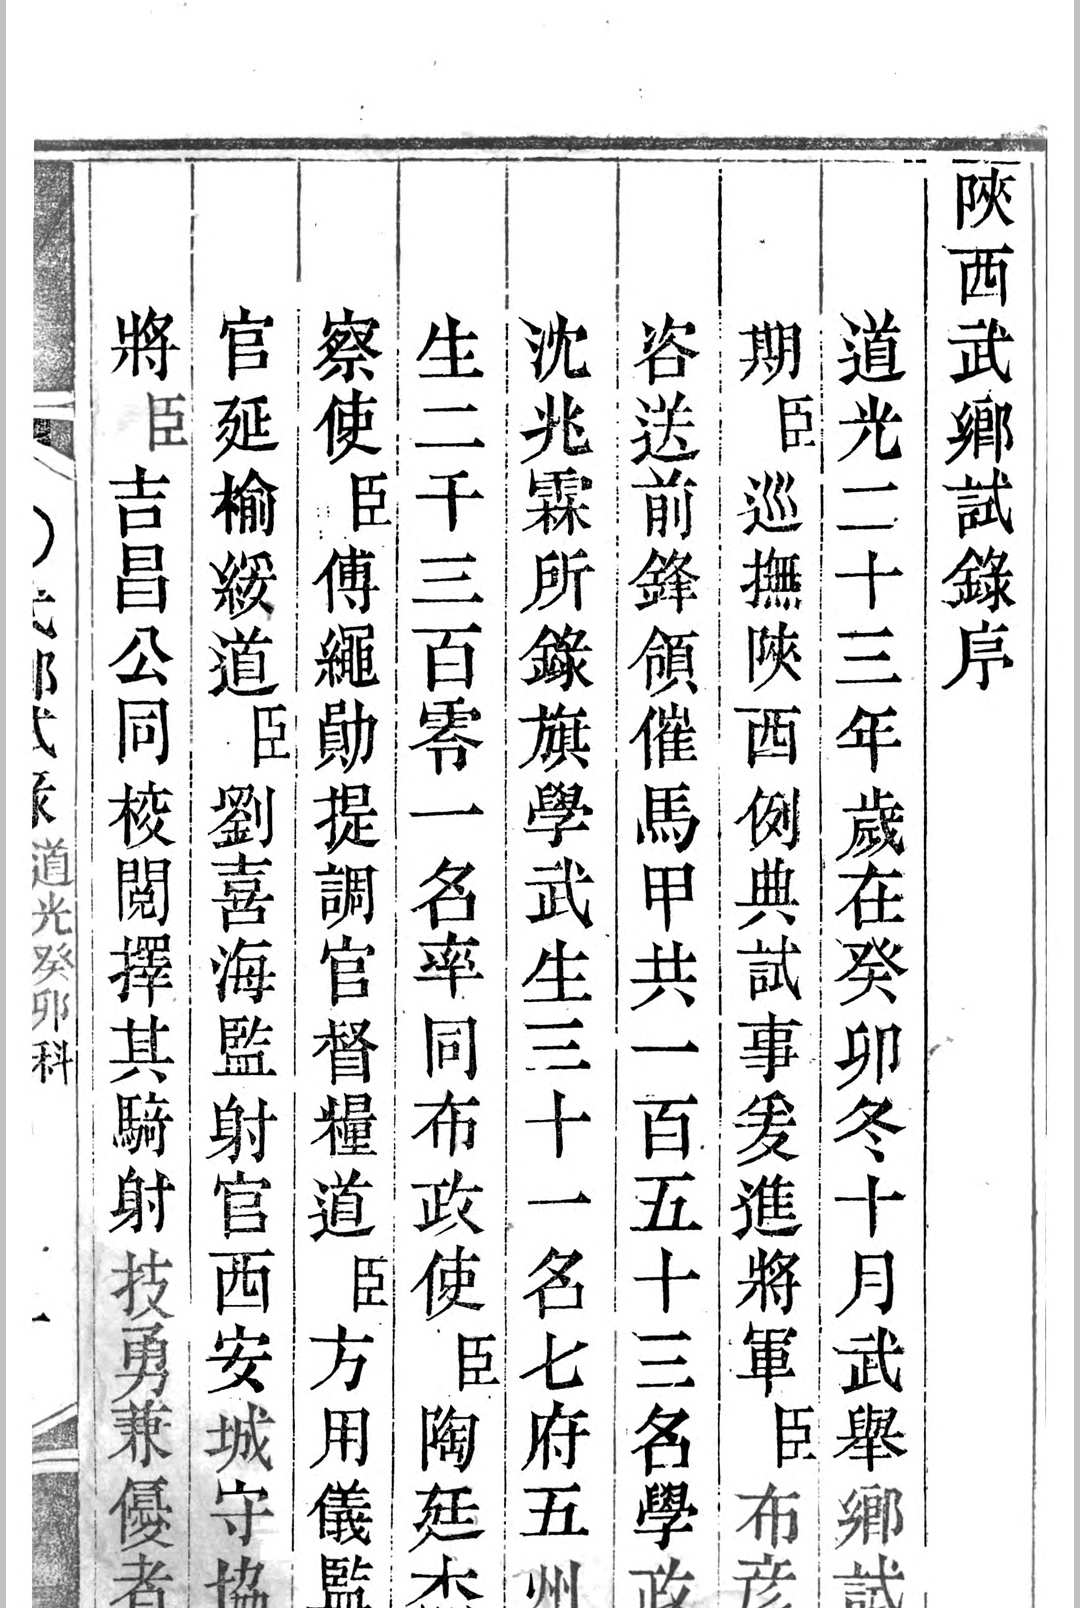 陝西武鄉試錄序
道光二十三年歲在癸卯冬十月武舉鄉試
期臣巡撫陝西例典試事爰進將軍臣布彦
咨送前鋒領催馬甲共一百五十三名學政
沈兆霖所錄旗學武生三十一名七府五州
生二千三百零一名率同布政使臣陶廷杰
察使臣傅繩勛提調官督糧道臣方用儀監
官延榆綏道臣劉喜海監射官西安城守協
將臣吉昌公同校閱擇其騎射技勇兼優者
武鄉試錄道光癸卯科 一